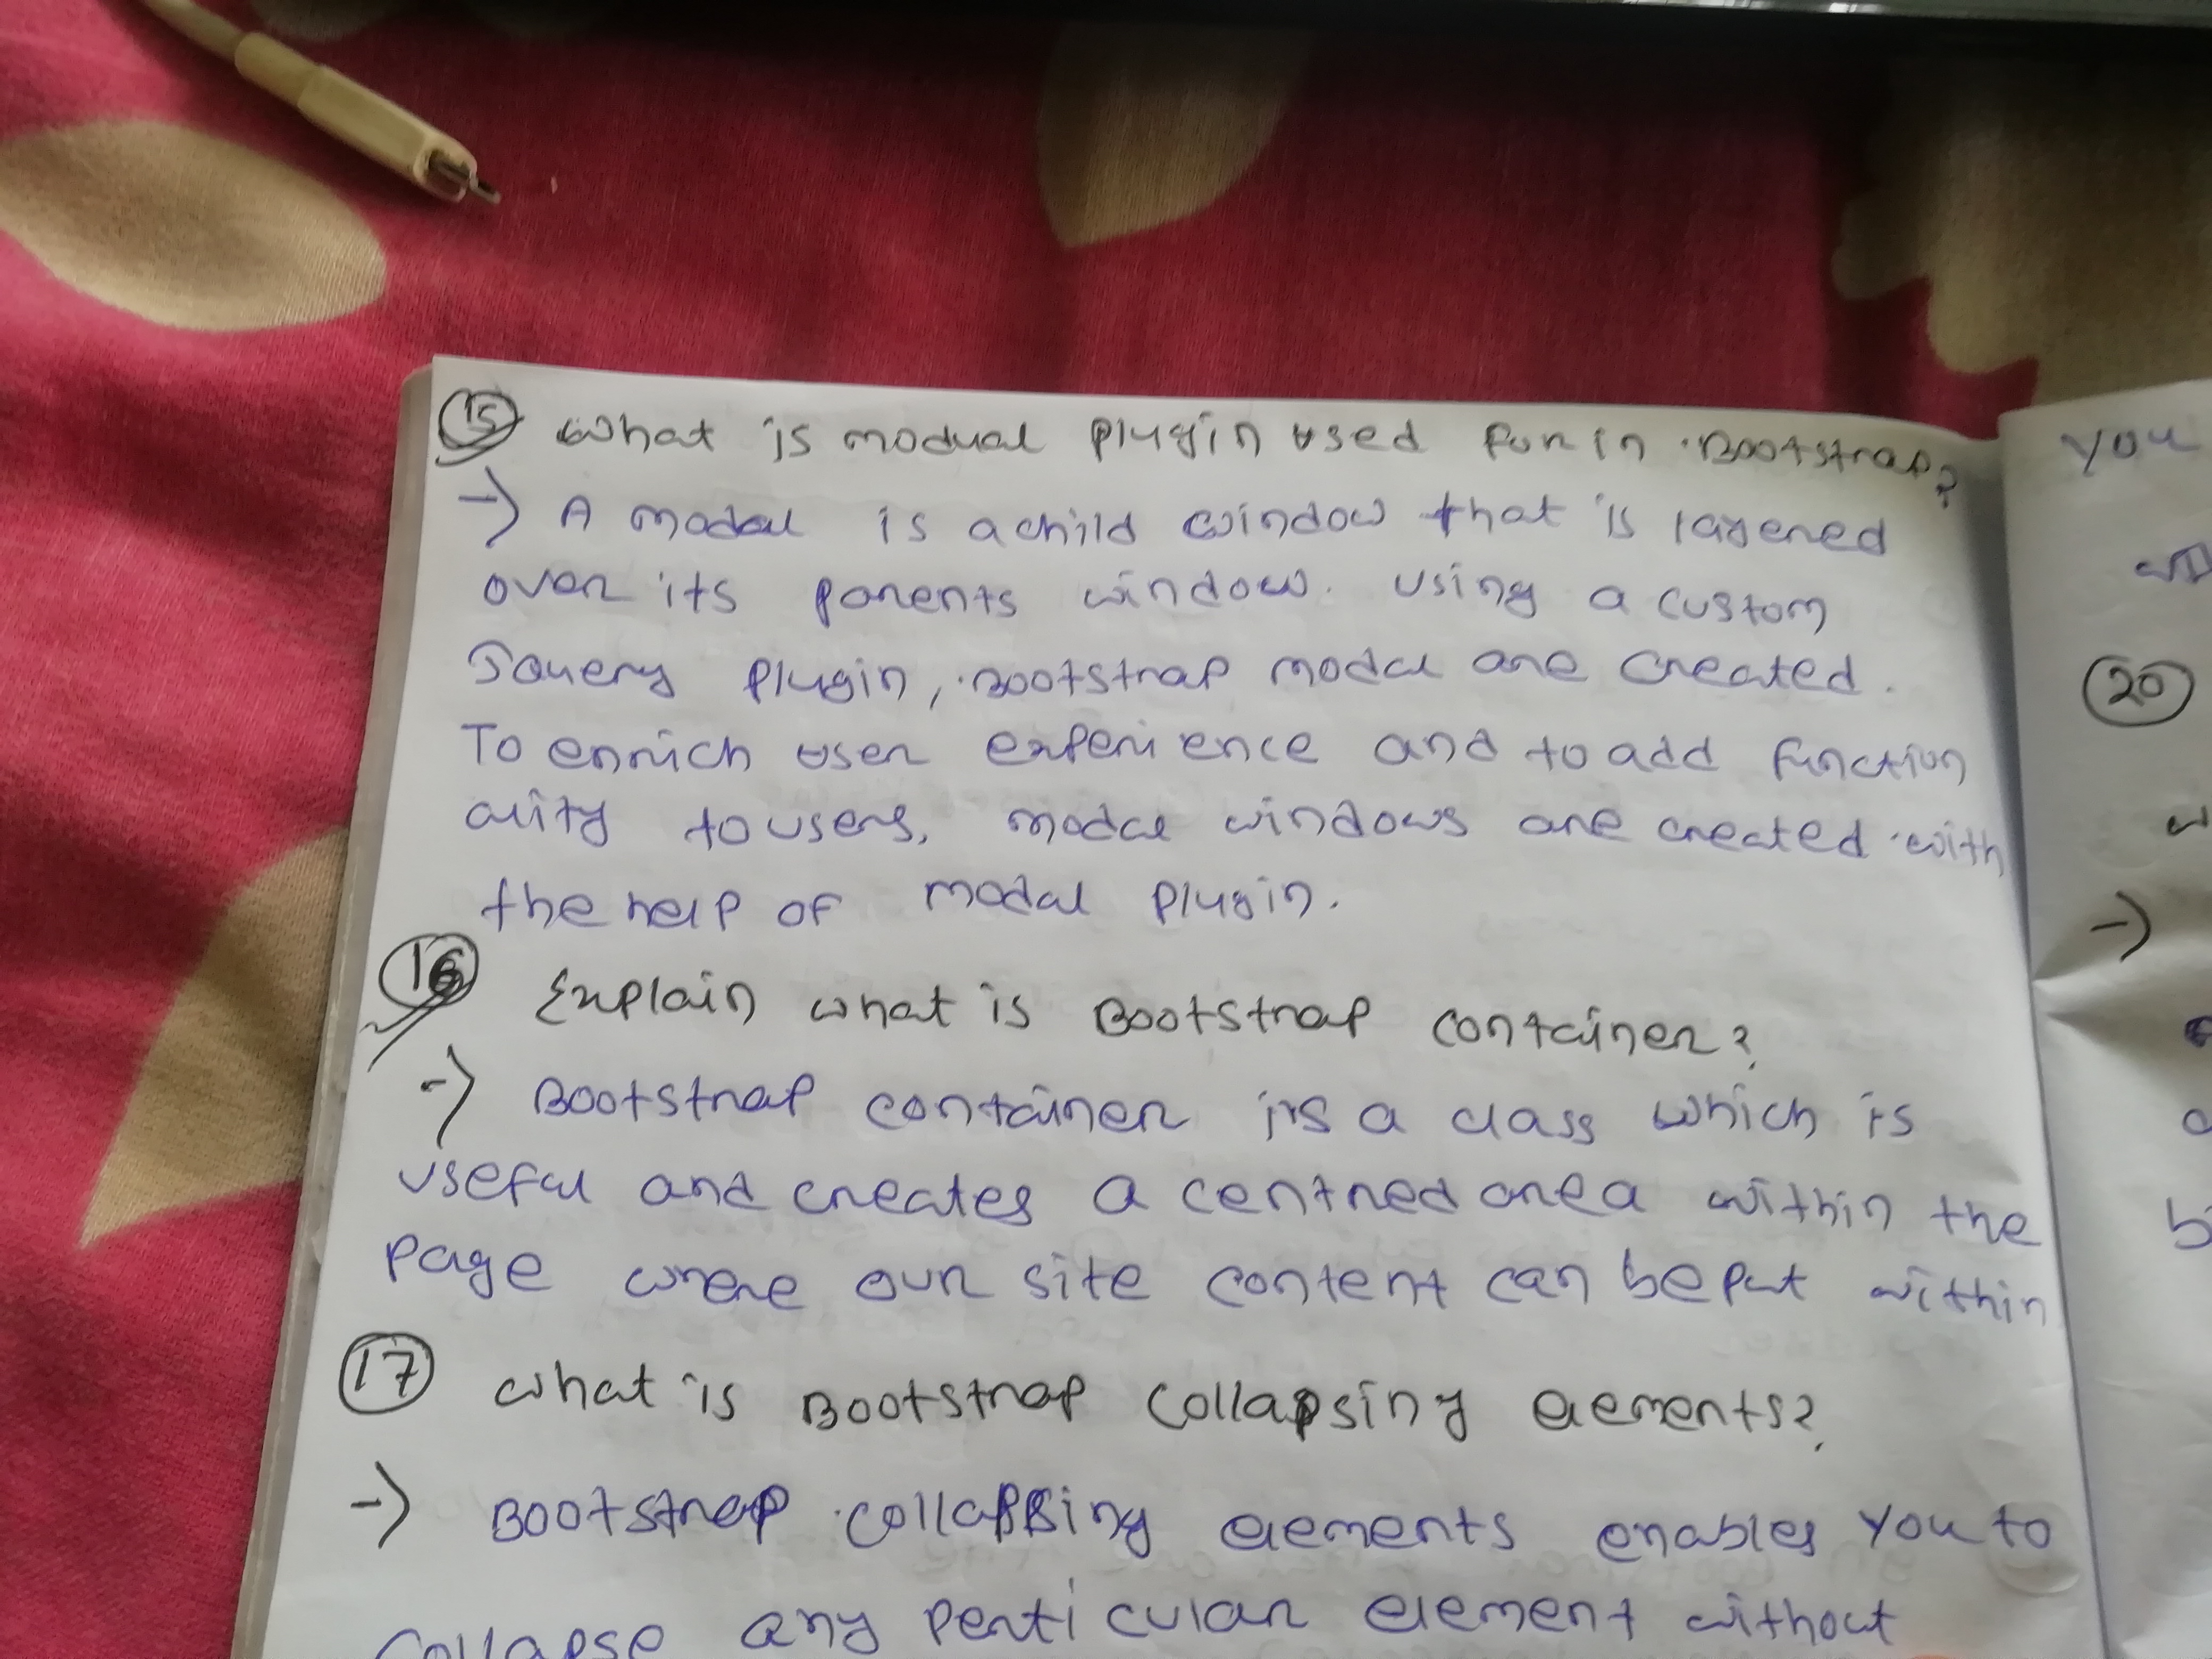 15 What is modual plugin used for in Bootstrap?
-> A modal is a child window that is layered
over its parents window. Using a custom
Jquery plugin, Bootstrap modal are created.
To enrich user experience and to add function
ality to users, modal windows are created with
the help of modal plugin.
16 Explain what is Bootstrap container?
-> Bootstrap container is a class which is
useful and creates a centred area within the
page where our site content can be put within
17 What is Bootstrap collapsing elements?
-> Bootstrap collapsing elements enables you to
collapse any perticular element without
you
20
->